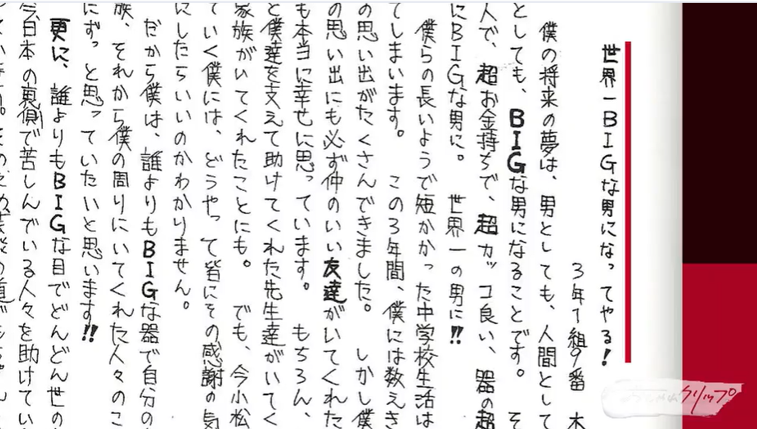 世界一BIGな男になってやる！
3年1組9番 木
僕の将来の夢は、男としても、人間として
としても、BIGな男になることです。 そ
人で、超お金持ちで、超カッコ良い、器の超
にBIGな男に。 世界一の男に!!
僕らの長いようで短かかった中学校生活は
てしまいます。 この3年間、僕には数えき
の思い出がたくさんできました。 しかし僕
の思い出にも必ず仲のいい友達がいてくれた
も本当に幸せに思っています。 もちろん、
と僕達を支えて助けてくれた先生達がいてく
家族がいてくれたことにも。 でも、今小松
ていく僕には、どうやって皆にその感謝の気
にしたらいいのかわかりません。
だから僕は、誰よりもBIGな器で自分の
族、それから僕の周りにいてくれた人々のこ
にずっと思っていたいと思います!!
更に、誰よりもBIGな目でどんどん世の
今日本の裏側で苦しんでいる人々を助けてい
クリップ